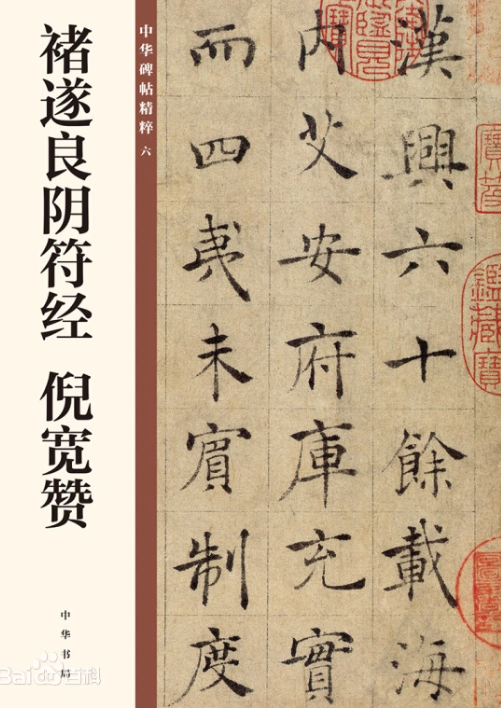 褚遂良阴符经 倪宽赞
中华书局
中华碑帖精粹 六
漢興六十餘載海
内艾安府庫充實
而四夷未賓制度
鑑藏寶
Bai百科